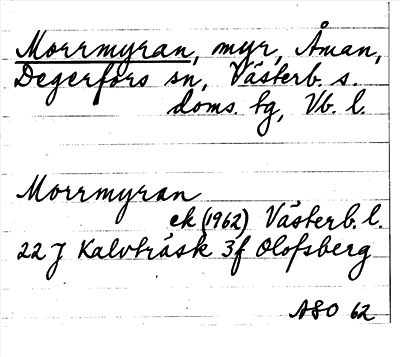 Morrmyran, myr, Åman,
Degerfors sn, Västerb. s.
doms. tg, Vb. l.
Morrmyran
ek (1962) Västerb. l.
22 J Kalvträsk 3f Olofsberg
ASO 62